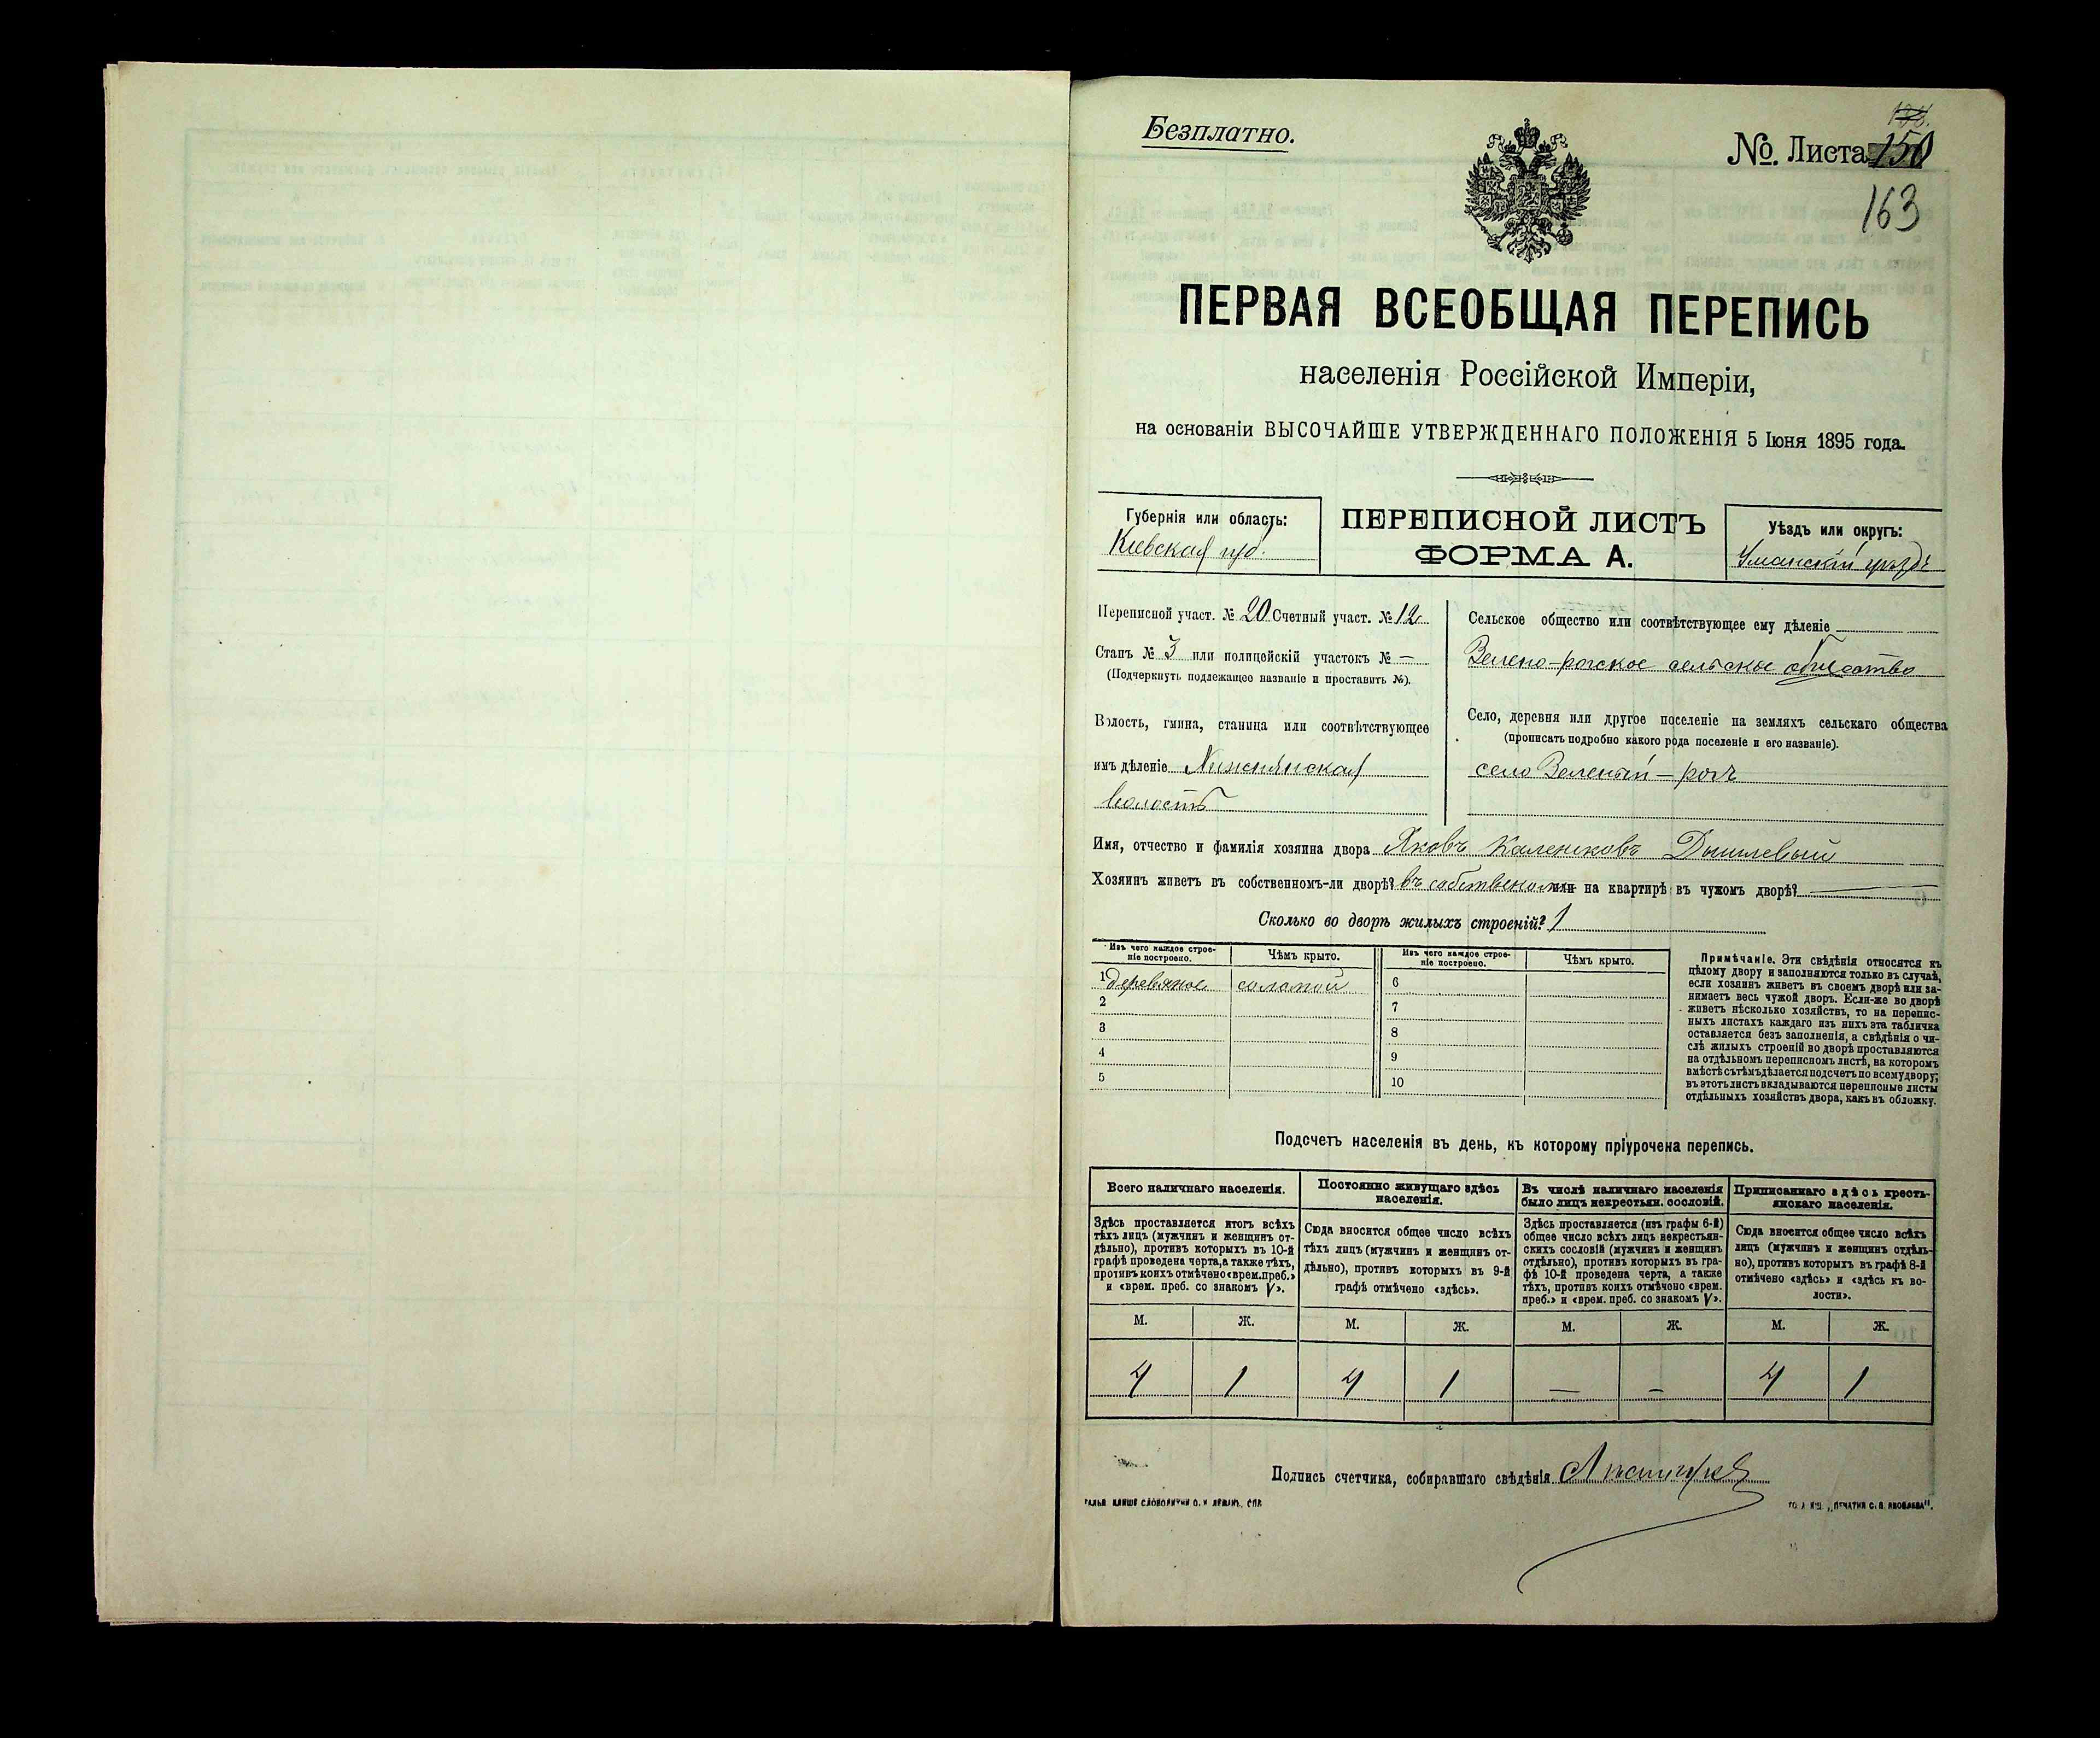 Безплатно.
№. Листа 150
163
ПЕРВАЯ ВСЕОБЩАЯ ПЕРЕПИСЬ
населенія Россійской Имперіи,
на основаніи ВЫСОЧАЙШЕ УТВЕРЖДЕННАГО ПОЛОЖЕНІЯ 5 Іюня 1895 года.
Губернія или область:
Кіевская губ.
ПЕРЕПИСНОЙ ЛИСТЪ
ФОРМА А.
Уѣздъ или округъ:
Уманскій уѣздъ
Переписной участ. № 20 Счетный участ. № 12
Станъ № 3 или полицейскій участокъ № —
(Подчеркнуть подлежащее названіе и проставить №).
Волость, гмина, станица или соотвѣтствующее
имъ дѣленіе
волость
Сельское общество или соотвѣтствующее ему дѣленіе
Зелено-рогское сельское общество
Село, деревня или другое поселеніе на земляхъ сельскаго общества
(прописать подробно какого рода поселеніе и его названіе).
село Зеленый-рогъ
Имя, отчество и фамилія хозяина двора Яковъ Калениковъ Дышлевый
Хозяинъ живетъ въ собственномъ-ли дворѣ? въ собственомъ или на квартирѣ въ чужомъ дворѣ? —
Сколько во дворѣ жилыхъ строеній? 1
Изъ чего каждое строе-
ніе построено.
Чѣмъ крыто.
1 деревяное соломой
2
3
4
5
Изъ чего каждое строе-
ніе построено.
Чѣмъ крыто.
6
7
8
9
10
Примѣчаніе. Эти свѣдѣнія относятся къ
цѣлому двору и заполняются только въ случаѣ,
если хозяинъ живетъ въ своемъ дворѣ или за-
нимаетъ весь чужой дворъ. Если-же во дворѣ
живетъ нѣсколько хозяйствъ, то на перепис-
ныхъ листахъ каждаго изъ нихъ эта табличка
оставляется безъ заполненія, а свѣдѣнія о чи-
слѣ жилыхъ строеній во дворѣ проставляются
на отдѣльномъ переписномъ листѣ, на которомъ
вмѣстѣ съ тѣмъ дѣлается подсчетъ по всему двору;
въ этотъ листъ вкладываются переписные листы
отдѣльныхъ хозяйствъ двора, какъ въ обложку.
Подсчетъ населенія въ день, къ которому пріурочена перепись.
Всего наличнаго населенія.
Здѣсь проставляется итогъ всѣхъ
тѣхъ лицъ (мужчинъ и женщинъ от-
дѣльно), противъ которыхъ въ 10-й
графѣ проведена черта, а также тѣхъ,
противъ коихъ отмѣчено «врем. преб.»
и «врем. преб. со знакомъ V».
М. Ж.
4 1
Постоянно живущаго здѣсь
населенія.
Сюда вносится общее число всѣхъ
тѣхъ лицъ (мужчинъ и женщинъ от-
дѣльно), противъ которыхъ въ 9-й
графѣ отмѣчено «здѣсь».
М. Ж.
4 1
Въ числѣ наличнаго населенія
было лицъ некрестьян. сословій.
Здѣсь проставляется (изъ графы 6-й)
общее число всѣхъ лицъ некрестьян-
скихъ сословій (мужчинъ и женщинъ
отдѣльно), противъ которыхъ въ гра-
фѣ 10-й проведена черта, а также
тѣхъ, противъ коихъ отмѣчено «врем.
преб.» и «врем. преб. со знакомъ V».
М. Ж.
— —
Приписаннаго здѣсь кресть-
янскаго населенія.
Сюда вносится общее число всѣхъ
лицъ (мужчинъ и женщинъ отдѣль-
но), противъ которыхъ въ графѣ 8-й
отмѣчено «здѣсь» и «здѣсь къ во-
лости».
М. Ж.
4 1
Подпись счетчика, собиравшаго свѣдѣнія